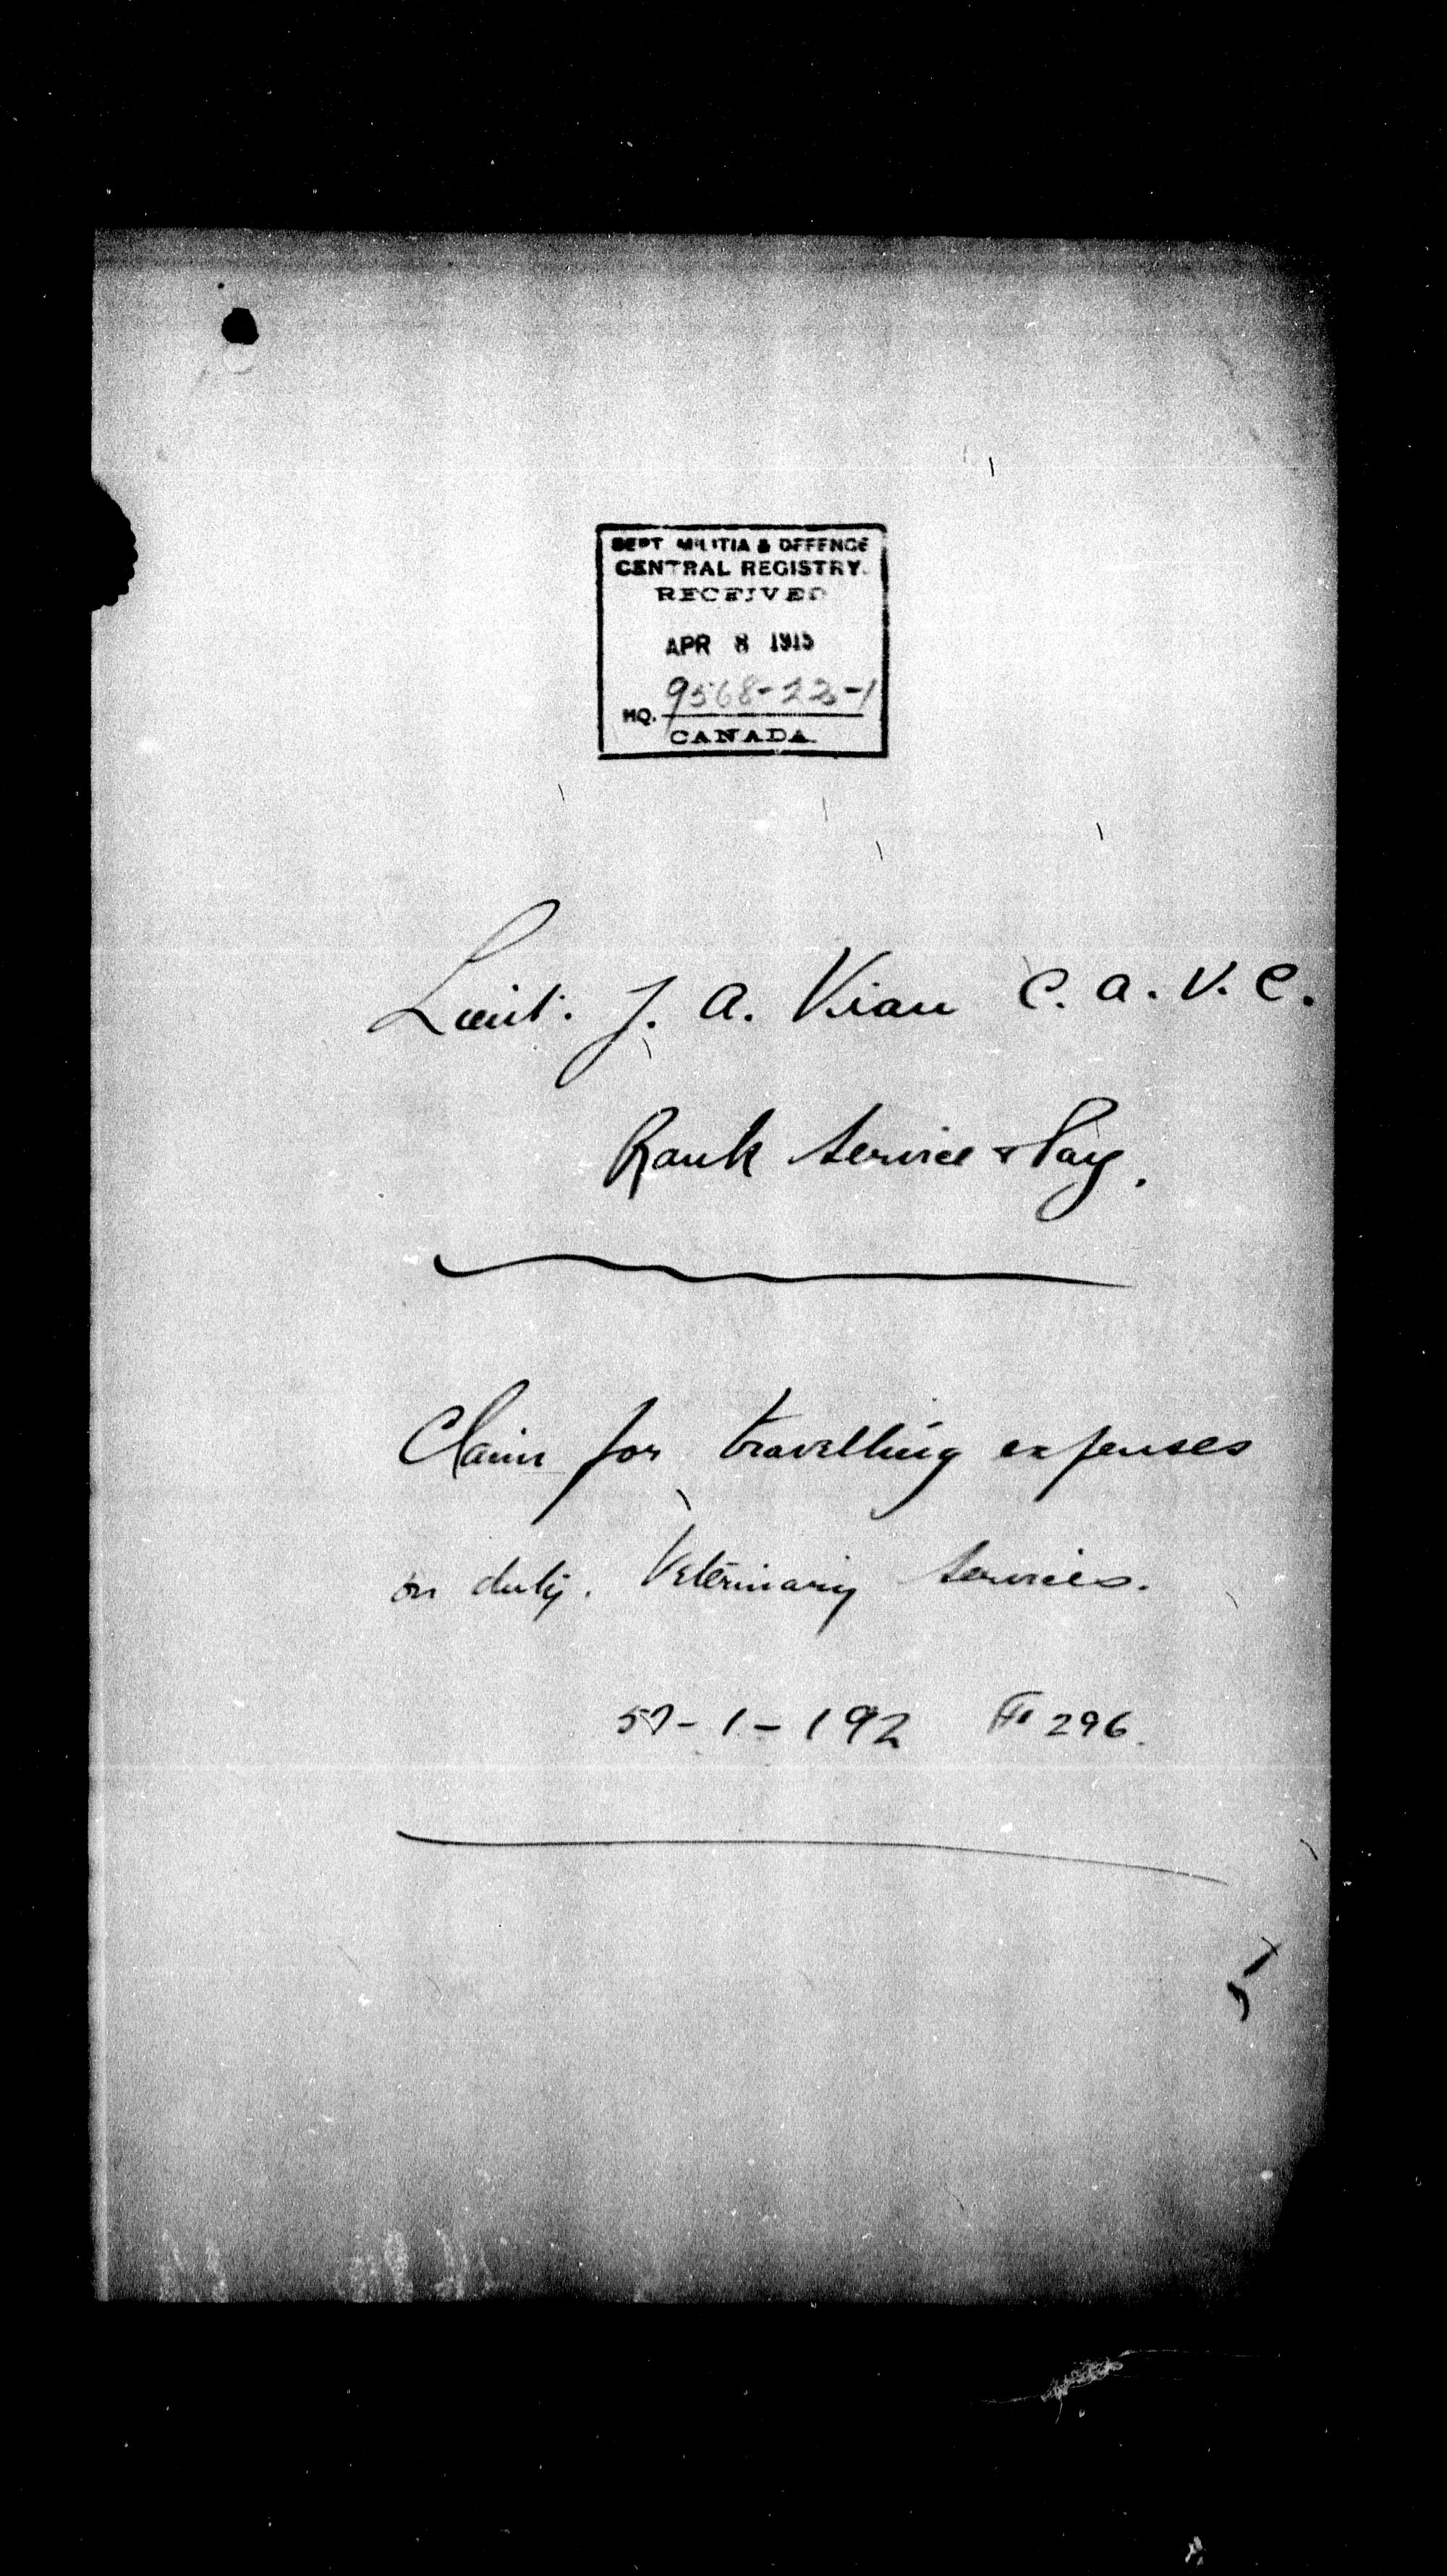 DEPT MILITIA & DEFENCE
CENTRAL REGISTRY.
RECEIVED
APR 8 1915
HQ. 9568-23-1
CANADA.
Lieut. J. A. Viau C. A. V. C.
Rank Service & Pay.
Claim for travelling expenses
on duty. Veterinary Services.
57-1-192 Fo 296.
5